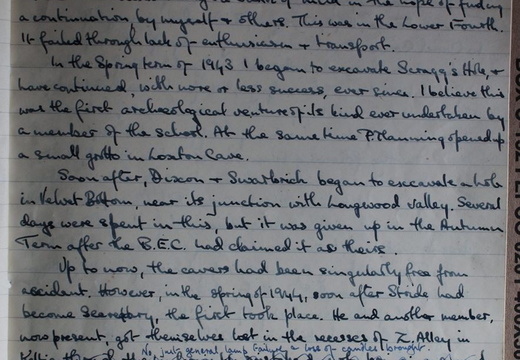 in the hope of finding
a continuation by myself & others. This was in the Lower Fourth.
It failed through lack of enthusiasm & transport.
In the Spring term of 1943 I began to excavate Scragg's Hole, &
have continued, with more or less success, ever since. I believe this
was the first archæological venture of its kind ever undertaken by
a member of the school. At the same time P. Manning opened up
a small grotto in Loxton Cave.
Soon after, Dixon & Swarbrick began to excavate a hole
in Velvet Bottom, near its junction with Longwood Valley. Several
days were spent in this, but it was given up in the Autumn
Term after the B.E.C. had claimed it as theirs.
Up to now, the cavers had been singularly free from
accident. However, in the Spring of 1944, soon after Stride had
become Secretary, the first took place. He and another member,
now present, got themselves lost in the recesses of Z. Alley in
No, just general lamp failure & loss of candles